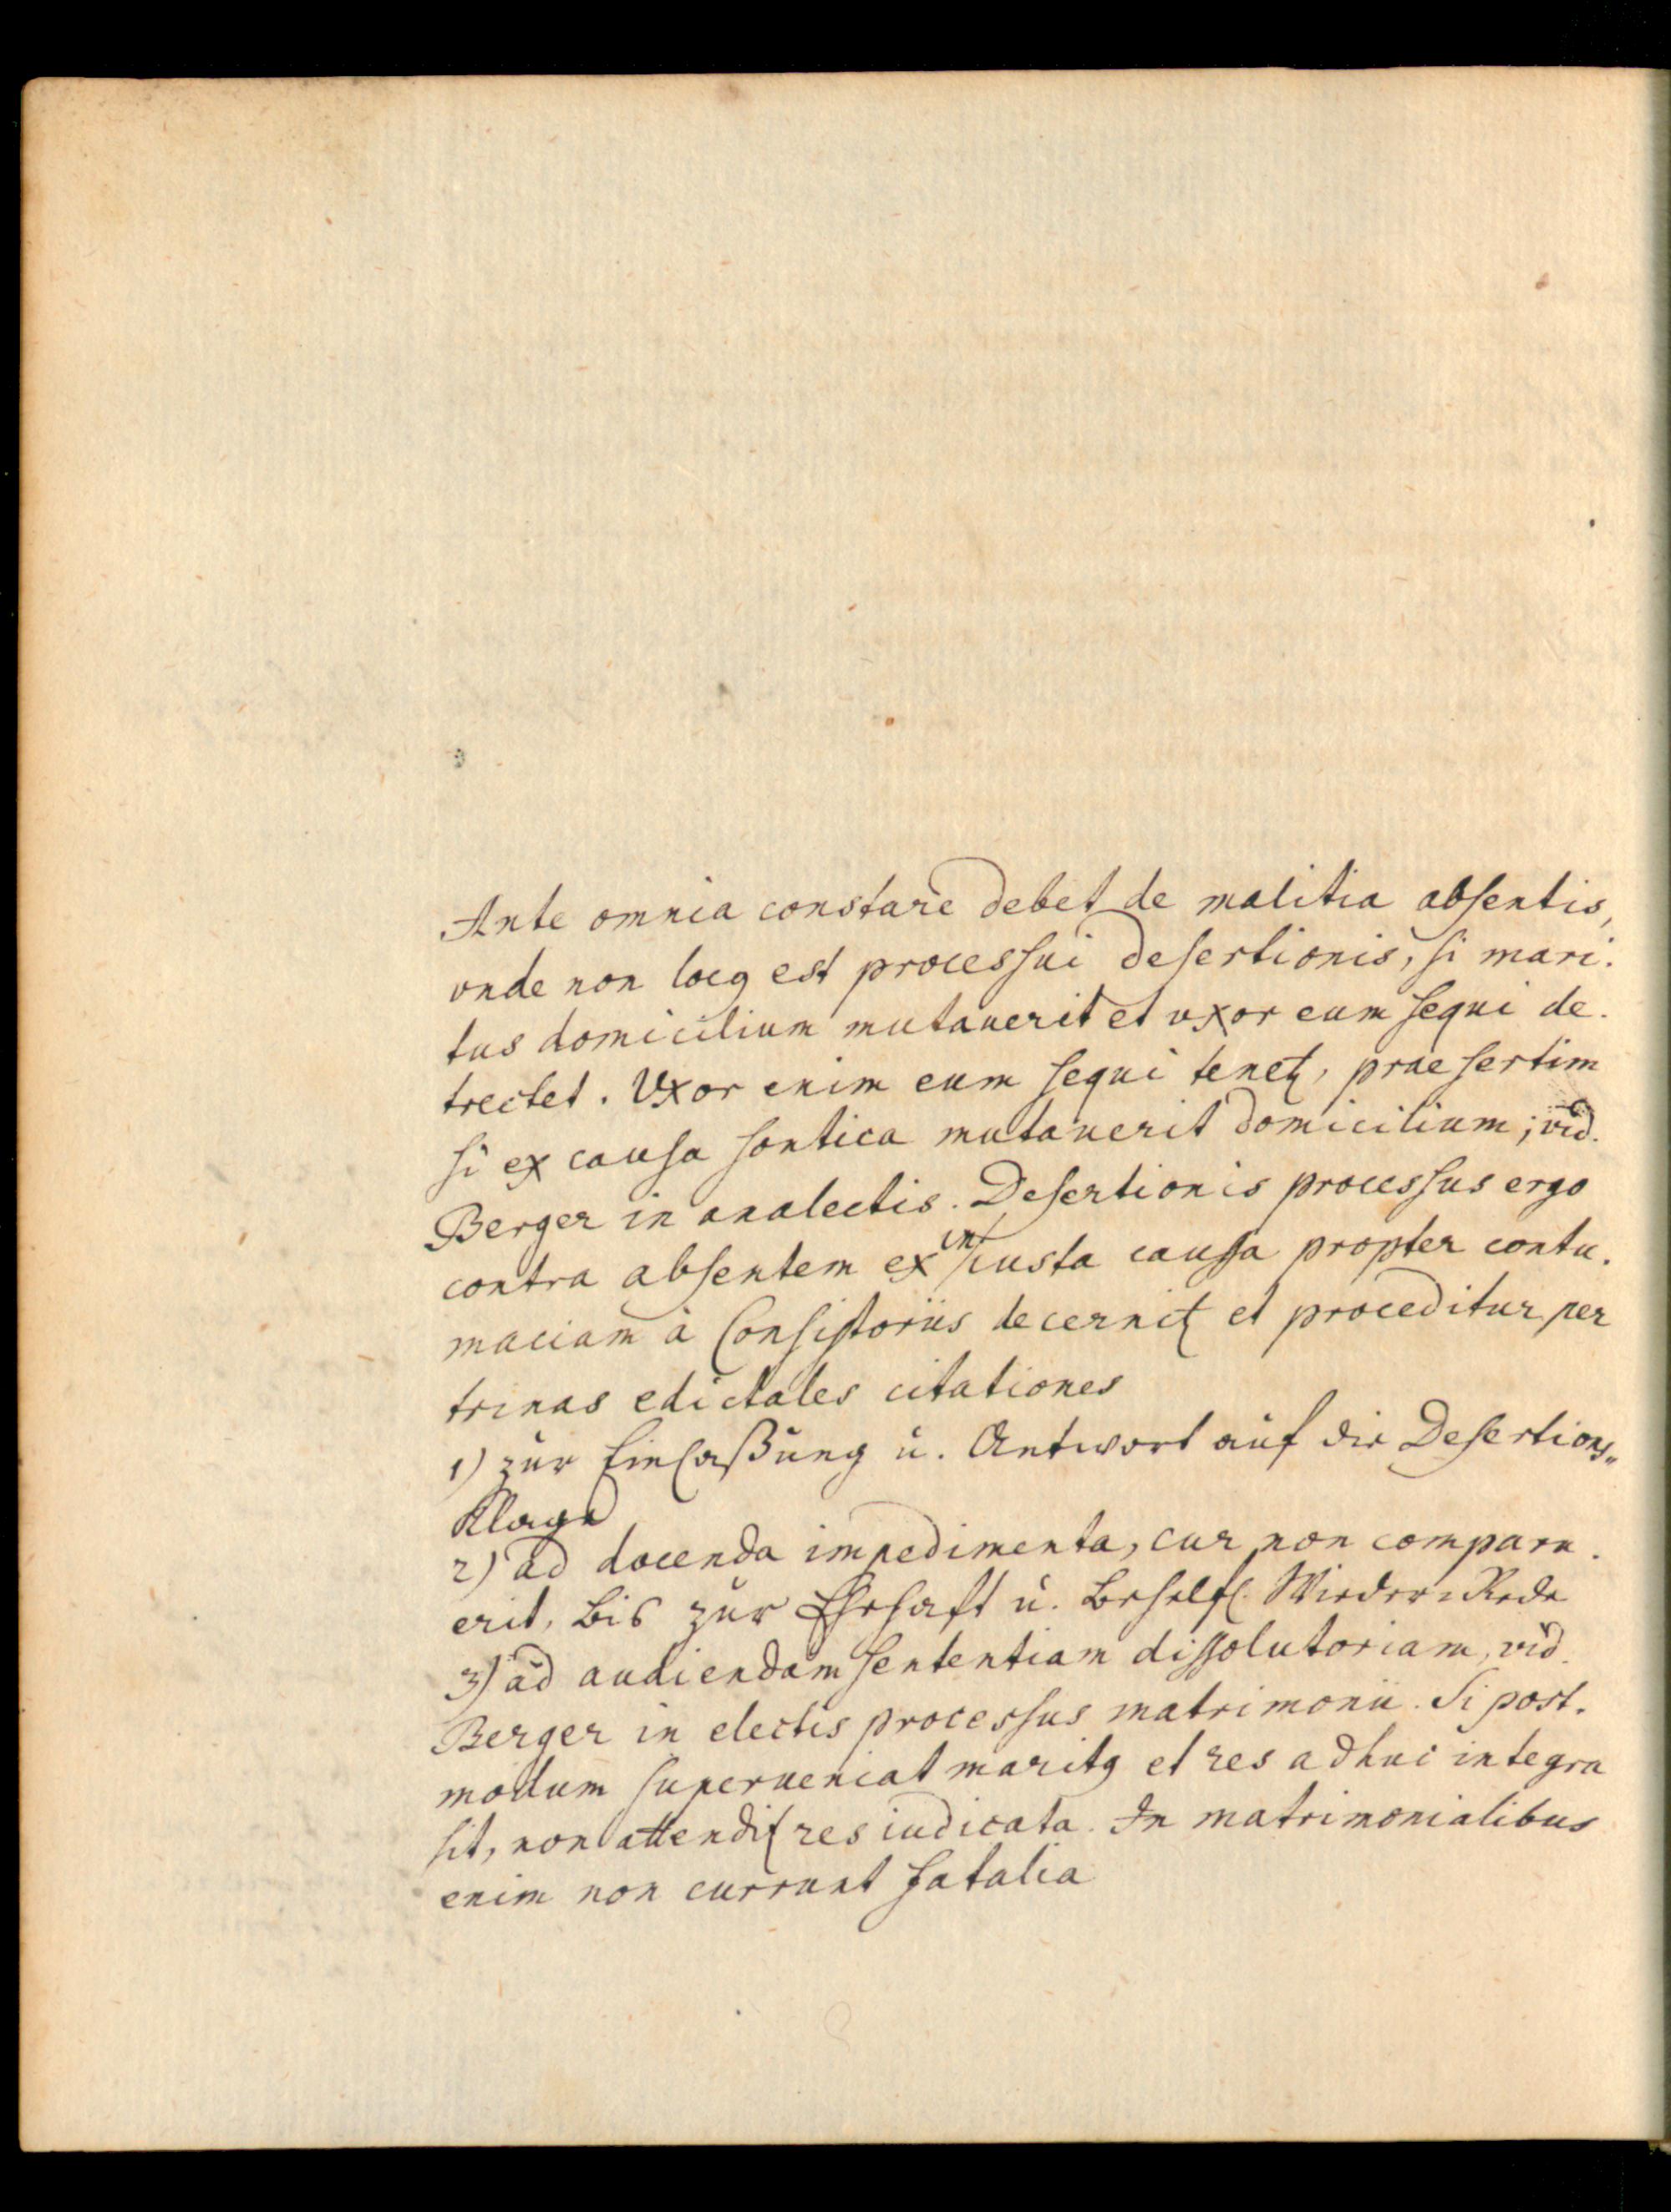 Ante omnia constare debet de malitia absentis,
vnde non locꝰ est processui desertionis, si mari-
tus domicilium mutauerit et vxor eum sequi de-
trectet. Vxor enim eum sequi tenetʒ, prae sertim
si ex causa sontica mutauerit domicilium; vid.
Berger in analectis. Desertionis processus ergo
contra absentem ex iniusta caussa propter contu-
maciam à Consistoriis decernitʒ et proceditur per
trinas edictales citationes
1) zur Einlaßung u. Antwort auf die Desertions„
Klage
2) ad docenda impedimenta, cur non comparu-
erit, bis zur Ehehaft u. behelfl. Wieder-Rede
3) ad audiendam sententiam dissolutoriam, vid.
Berger in electis processus matrimonii. Si post-
modum superueniat maritꝰ et res adhuc integra
sit, non attenditʒ res iudicata. In matrimonialibus
enim non currunt fatalia